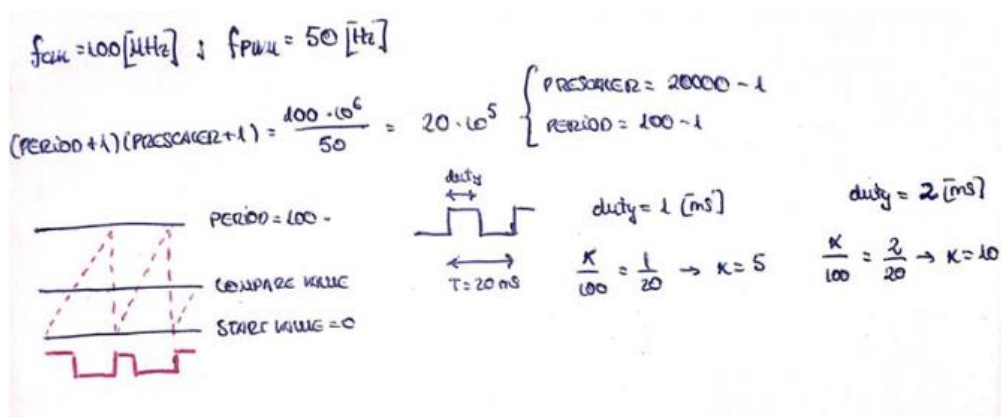 fclk = 100 [MHz] ; fPWM = 50 [Hz]
(PERIOD+1)(PRESCALER+1) = 100·10⁶ / 50 = 20·10⁵ { PRESCALER = 20000 - 1
PERIOD = 100 - 1
PERIOD = 100 -
COMPARE VALUE
START VALUE = 0
duty
T = 20 ms
duty = 1 [ms]
K/100 = 1/20 → K = 5
duty = 2 [ms]
K/100 = 2/20 → K = 10